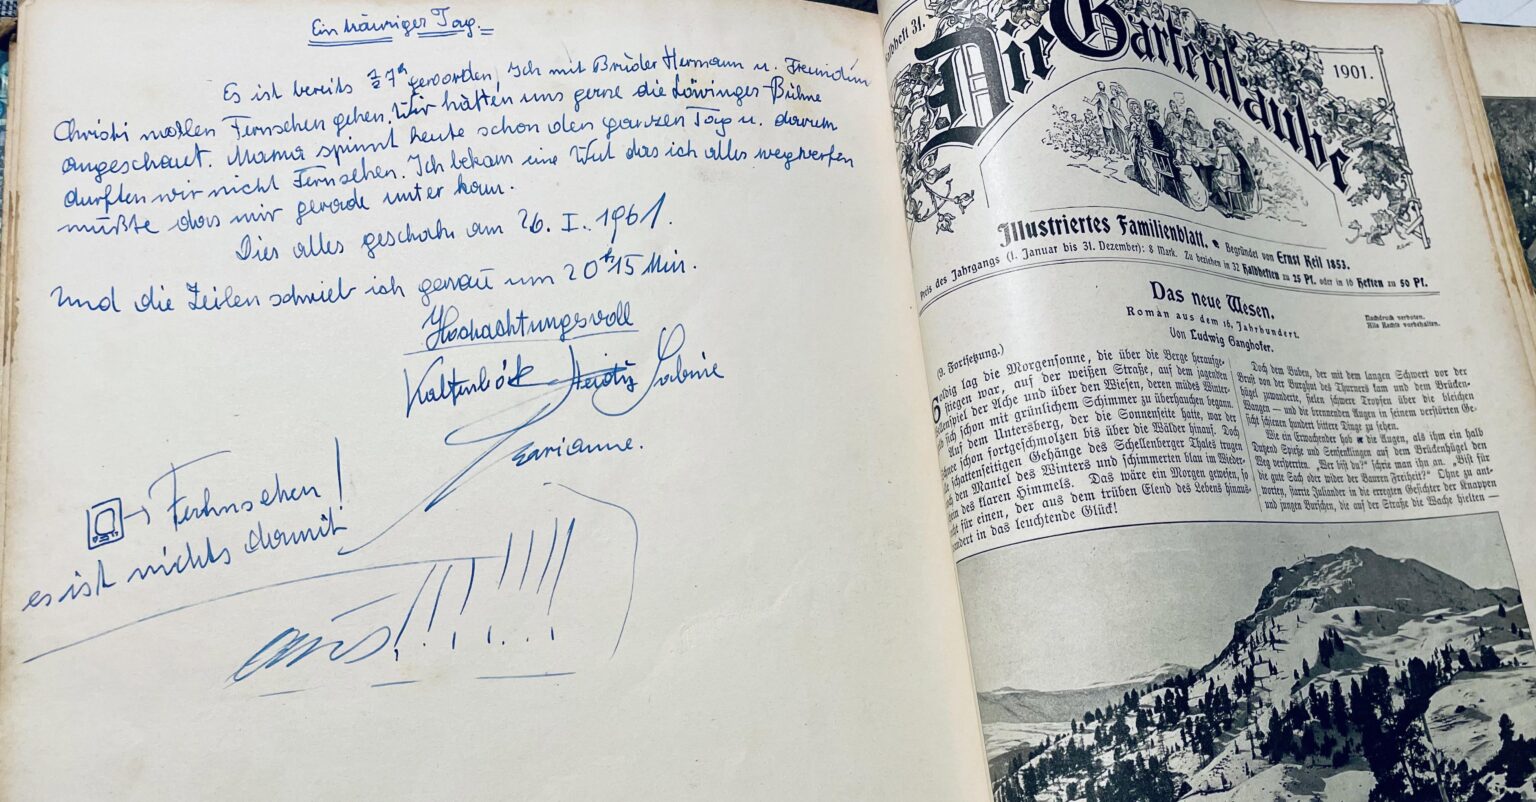 Ein trauriger Tag.
Es ist bereits ½7h geworden, Ich mit Brüder Hermann u. Freundin
Christi wollen Fernsehen gehen. Wir hätten uns gerne die Löwinger-Bühne
angeschaut. Mama spinnt heute schon den ganzen Tag u. darum
durften wir nicht Fernsehen. Ich bekam eine Wut das ich alles wegwerfen
müßte das mir gerade unter kam.
Dies alles geschah am 26. I. 1961.
Und die Zeilen schrieb ich genau um 20h 15 Min.
Hochachtungsvoll
Kaltenböck Sabine
Marianne.
Fernsehen!
es ist nichts damit
aus!!!!!!!!
Halbheft 31.
1901.
Die Gartenlaube
Illustriertes Familienblatt. • Begründet von Ernst Keil 1853.
Preis des Jahrgangs (1. Januar bis 31. Dezember): 8 Mark. Zu beziehen in 32 Halbheften zu 25 Pf. oder in 16 Heften zu 50 Pf.
Das neue Wesen.
Nachdruck verboten.
Alle Rechte vorbehalten.
Roman aus dem 16. Jahrhundert.
Von Ludwig Ganghofer.
(9. Fortsetzung.)
Goldig lag die Morgensonne, die über die Berge heraufge-
stiegen war, auf der weißen Straße, auf dem jagenden
Wellenspiel der Ache und über den Wiesen, deren müdes Winter-
sich schon mit grünlichem Schimmer zu überhauchen begann.
Auf dem Untersberg, der die Sonnenseite hatte, war der
Schnee schon fortgeschmolzen bis über die Wälder hinauf. Doch
schattenseitigen Gehänge des Schellenberger Thales trugen
noch den Mantel des Winters und schimmerten blau im Wieder-
schein des klaren Himmels. Das wäre ein Morgen gewesen, so
recht für einen, der aus dem trüben Elend des Lebens hinaus-
wandert in das leuchtende Glück!
Doch dem Buben, der mit dem langen Schwert vor der
Brust von der Burghut des Thurners kam und dem Brücken-
hügel zuwanderte, fielen schwere Tropfen über die bleichen
Wangen — und die brennenden Augen in seinem verstörten Ge-
sicht schienen hundert bittere Dinge zu sehen.
Wie ein Erwachender hob er die Augen, als ihm ein halb
Dutzend Spieße und Sensenklingen auf dem Brückenhügel den
Weg versperrten. „Wer bist du?" schrie man ihn an. „Bist für
die gute Sach oder wider der Bauren Freiheit?" Ohne zu ant-
worten, starrte Juliander in die erregten Gesichter der Knappen
und jungen Burschen, die auf der Straße die Wache hielten —